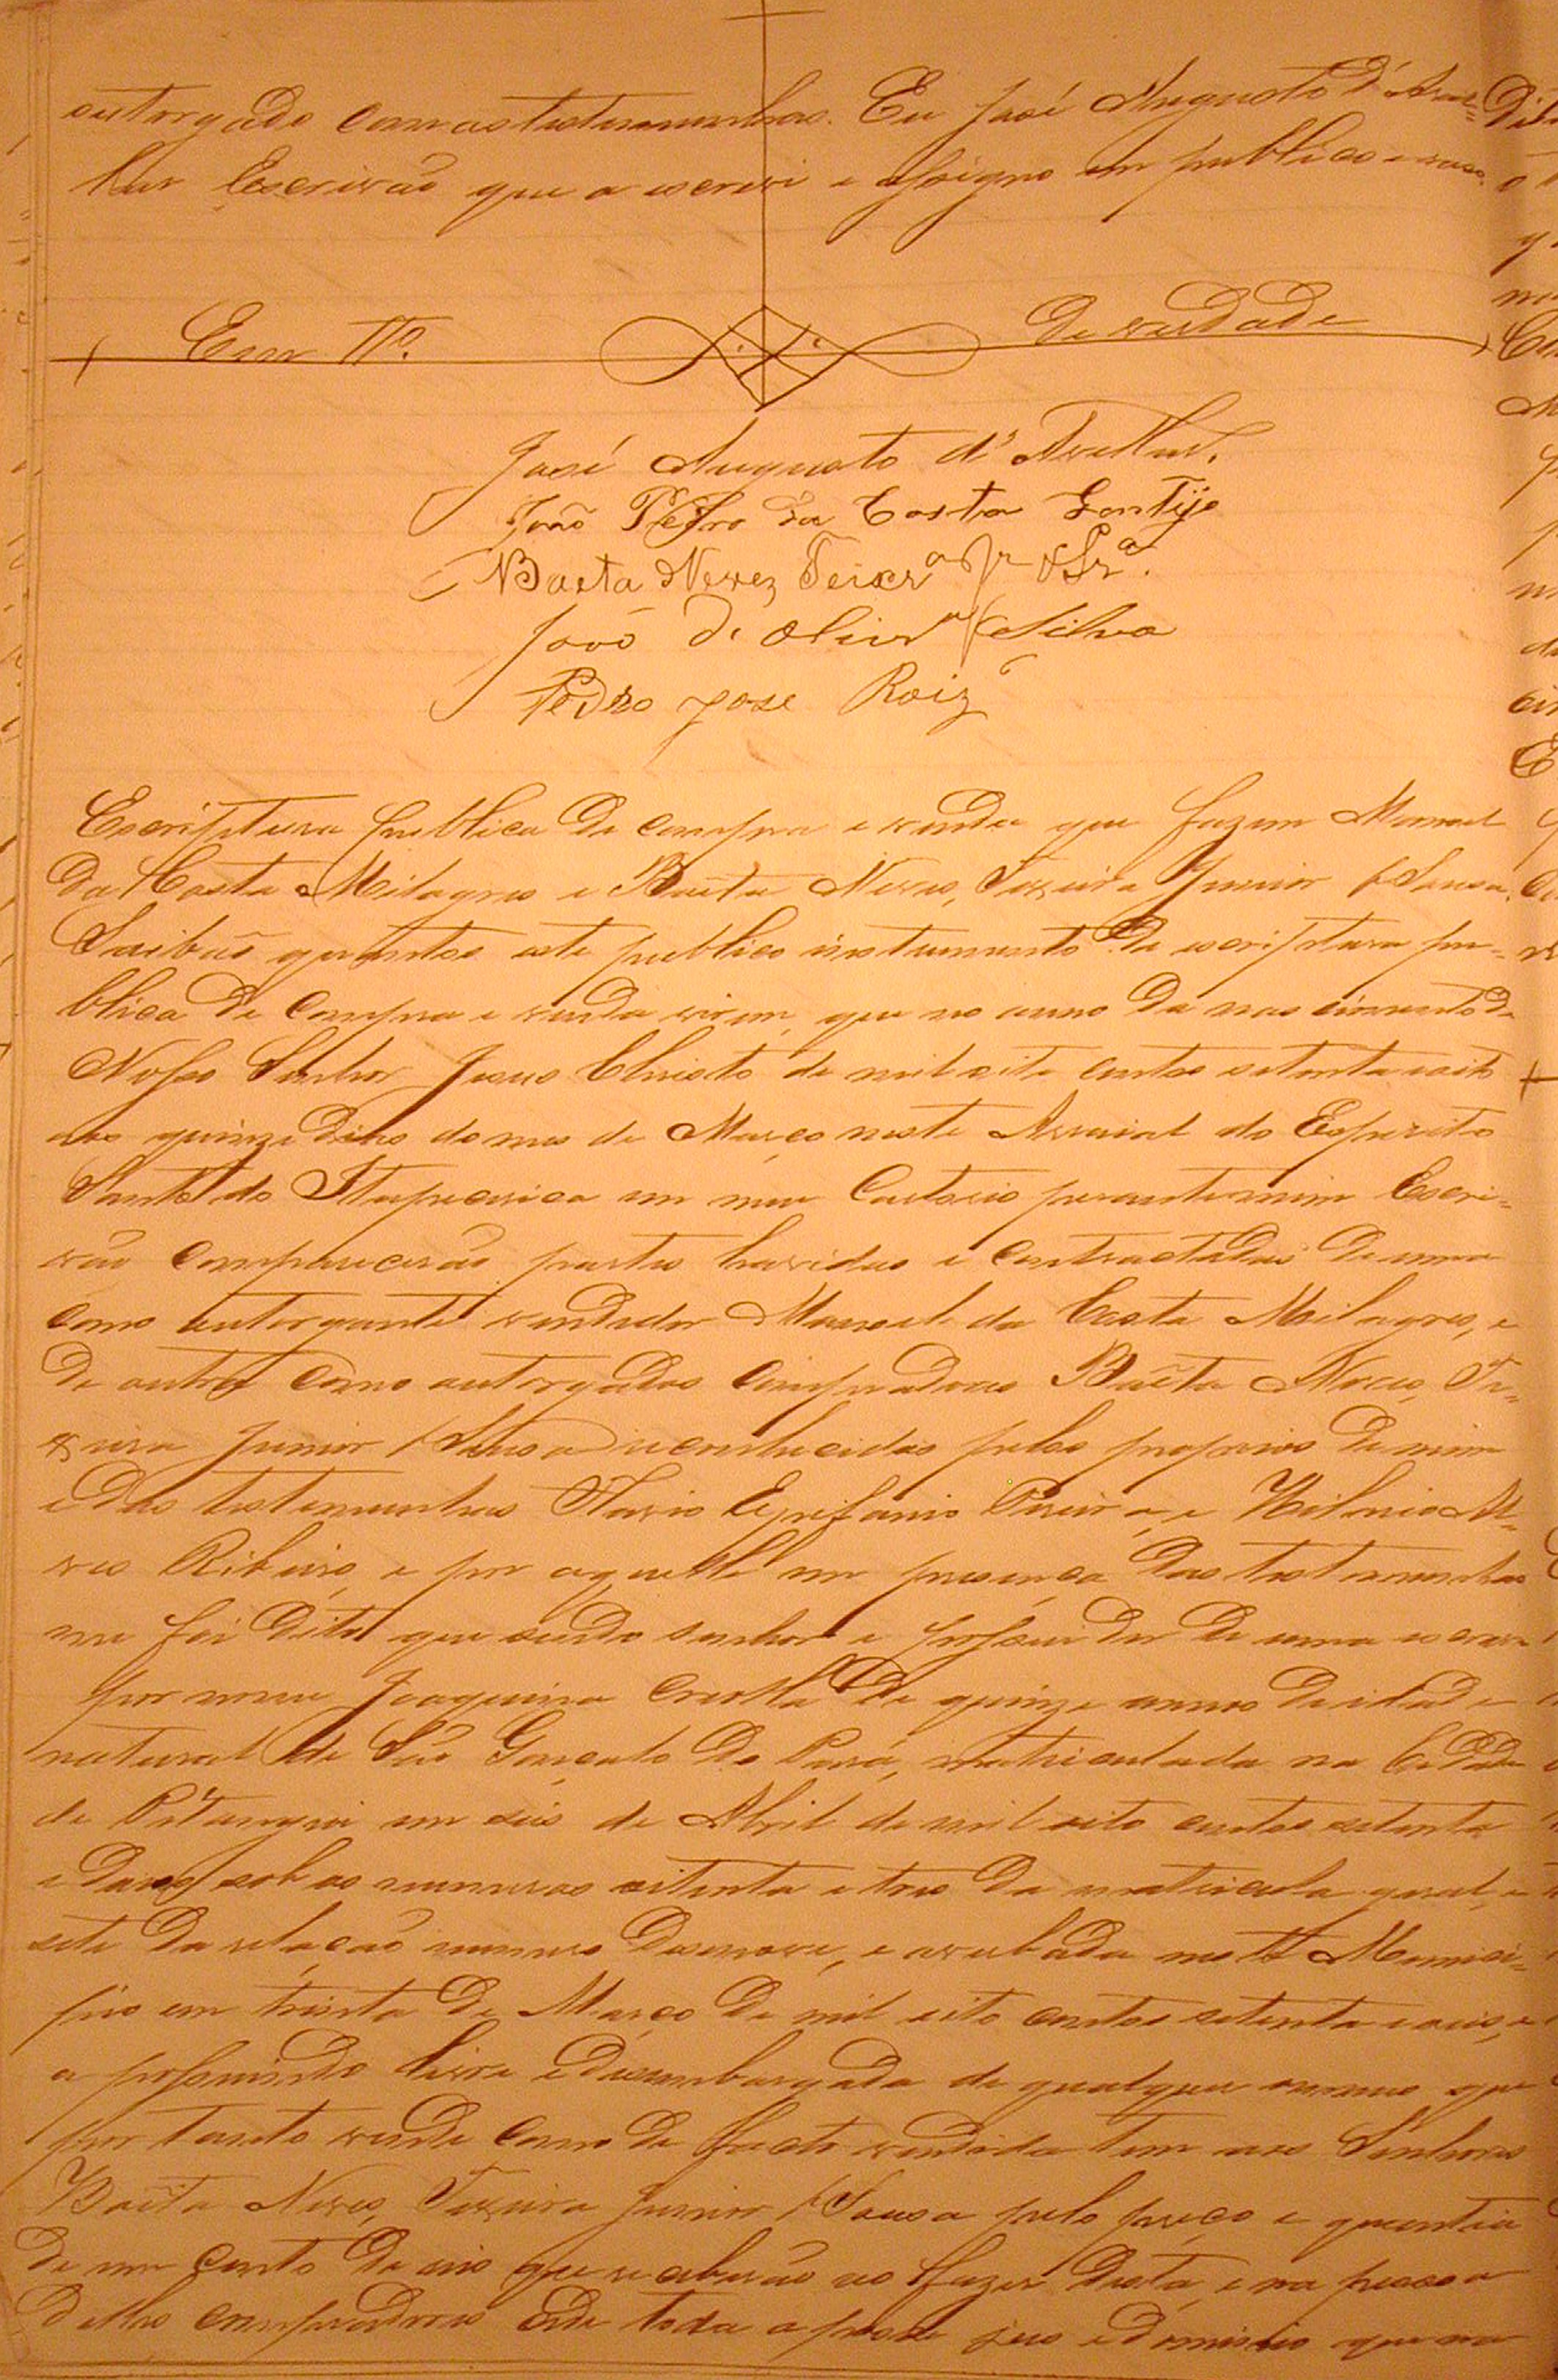 outorgado com as testemunhas. Eu José Augusto d'Avel-
lar Escrivão que a escrevi e assigno em publico e raso.
Em Tº. de verdade
José Augusto d'Avellar.
João Pedro da Costa Gontijo
Baeta Nevez Teixrª Jr & Sz.ª
João de Olivrª Silva
Pedro Jose Roiz
Escriptura publica de compra e venda que fazem Manoel
da Costa Milagres e Baêta Neves, Teixeira Junior & Sousa.
Saibão quantos este publico instrumento de escriptura pu-
blica de compra e venda virem, que no anno do nascimento de
Nosso Senhor Jesus Christo de mil oito centos setenta e oito
aos quinze dias do mes de Março neste Arraial do Espirito
Santo do Itapecerica em meu Cartorio perante mim Escri-
vão comparecerão partes havidas e contractadas de uma
como outorgante vendedor Manoel da Costa Milagres, e
de outra como outorgados compradores Baêta Neves, Tei-
xeira Junior & Sousa reconhecidos pelos proprios de mim
e das testemunhas Flavio Epifanio Pereira, e Hilario Al-
ves Ribeiro, e por aquelle em presença das testemunhas
me foi dito que sendo senhor e possuidor de uma escrava
por nome Joaquina creoulla de quinze annos de idade
natural de São Gonçalo do Pará, matriculada na Cidade
de Pitanguy em seis de Abril de mil oito centos setenta
e dous sob os numeros oitenta e tres da matricula geral, e
sete da relação numero desenove, e averbada neste Munici-
pio em trinta de Março de mil oito centos setenta e seis, e
a possuindo livre e desembargada de qualquer onnus que
por tanto vende como de facto vendida tem aos Senhores
Baêta Neves, Teixeira Junior & Sousa pelo preço e quantia
de um conto de reis que recebeu ao fazer desta, e na pessoa
delles compradores cede toda a posse jus e dominio que na